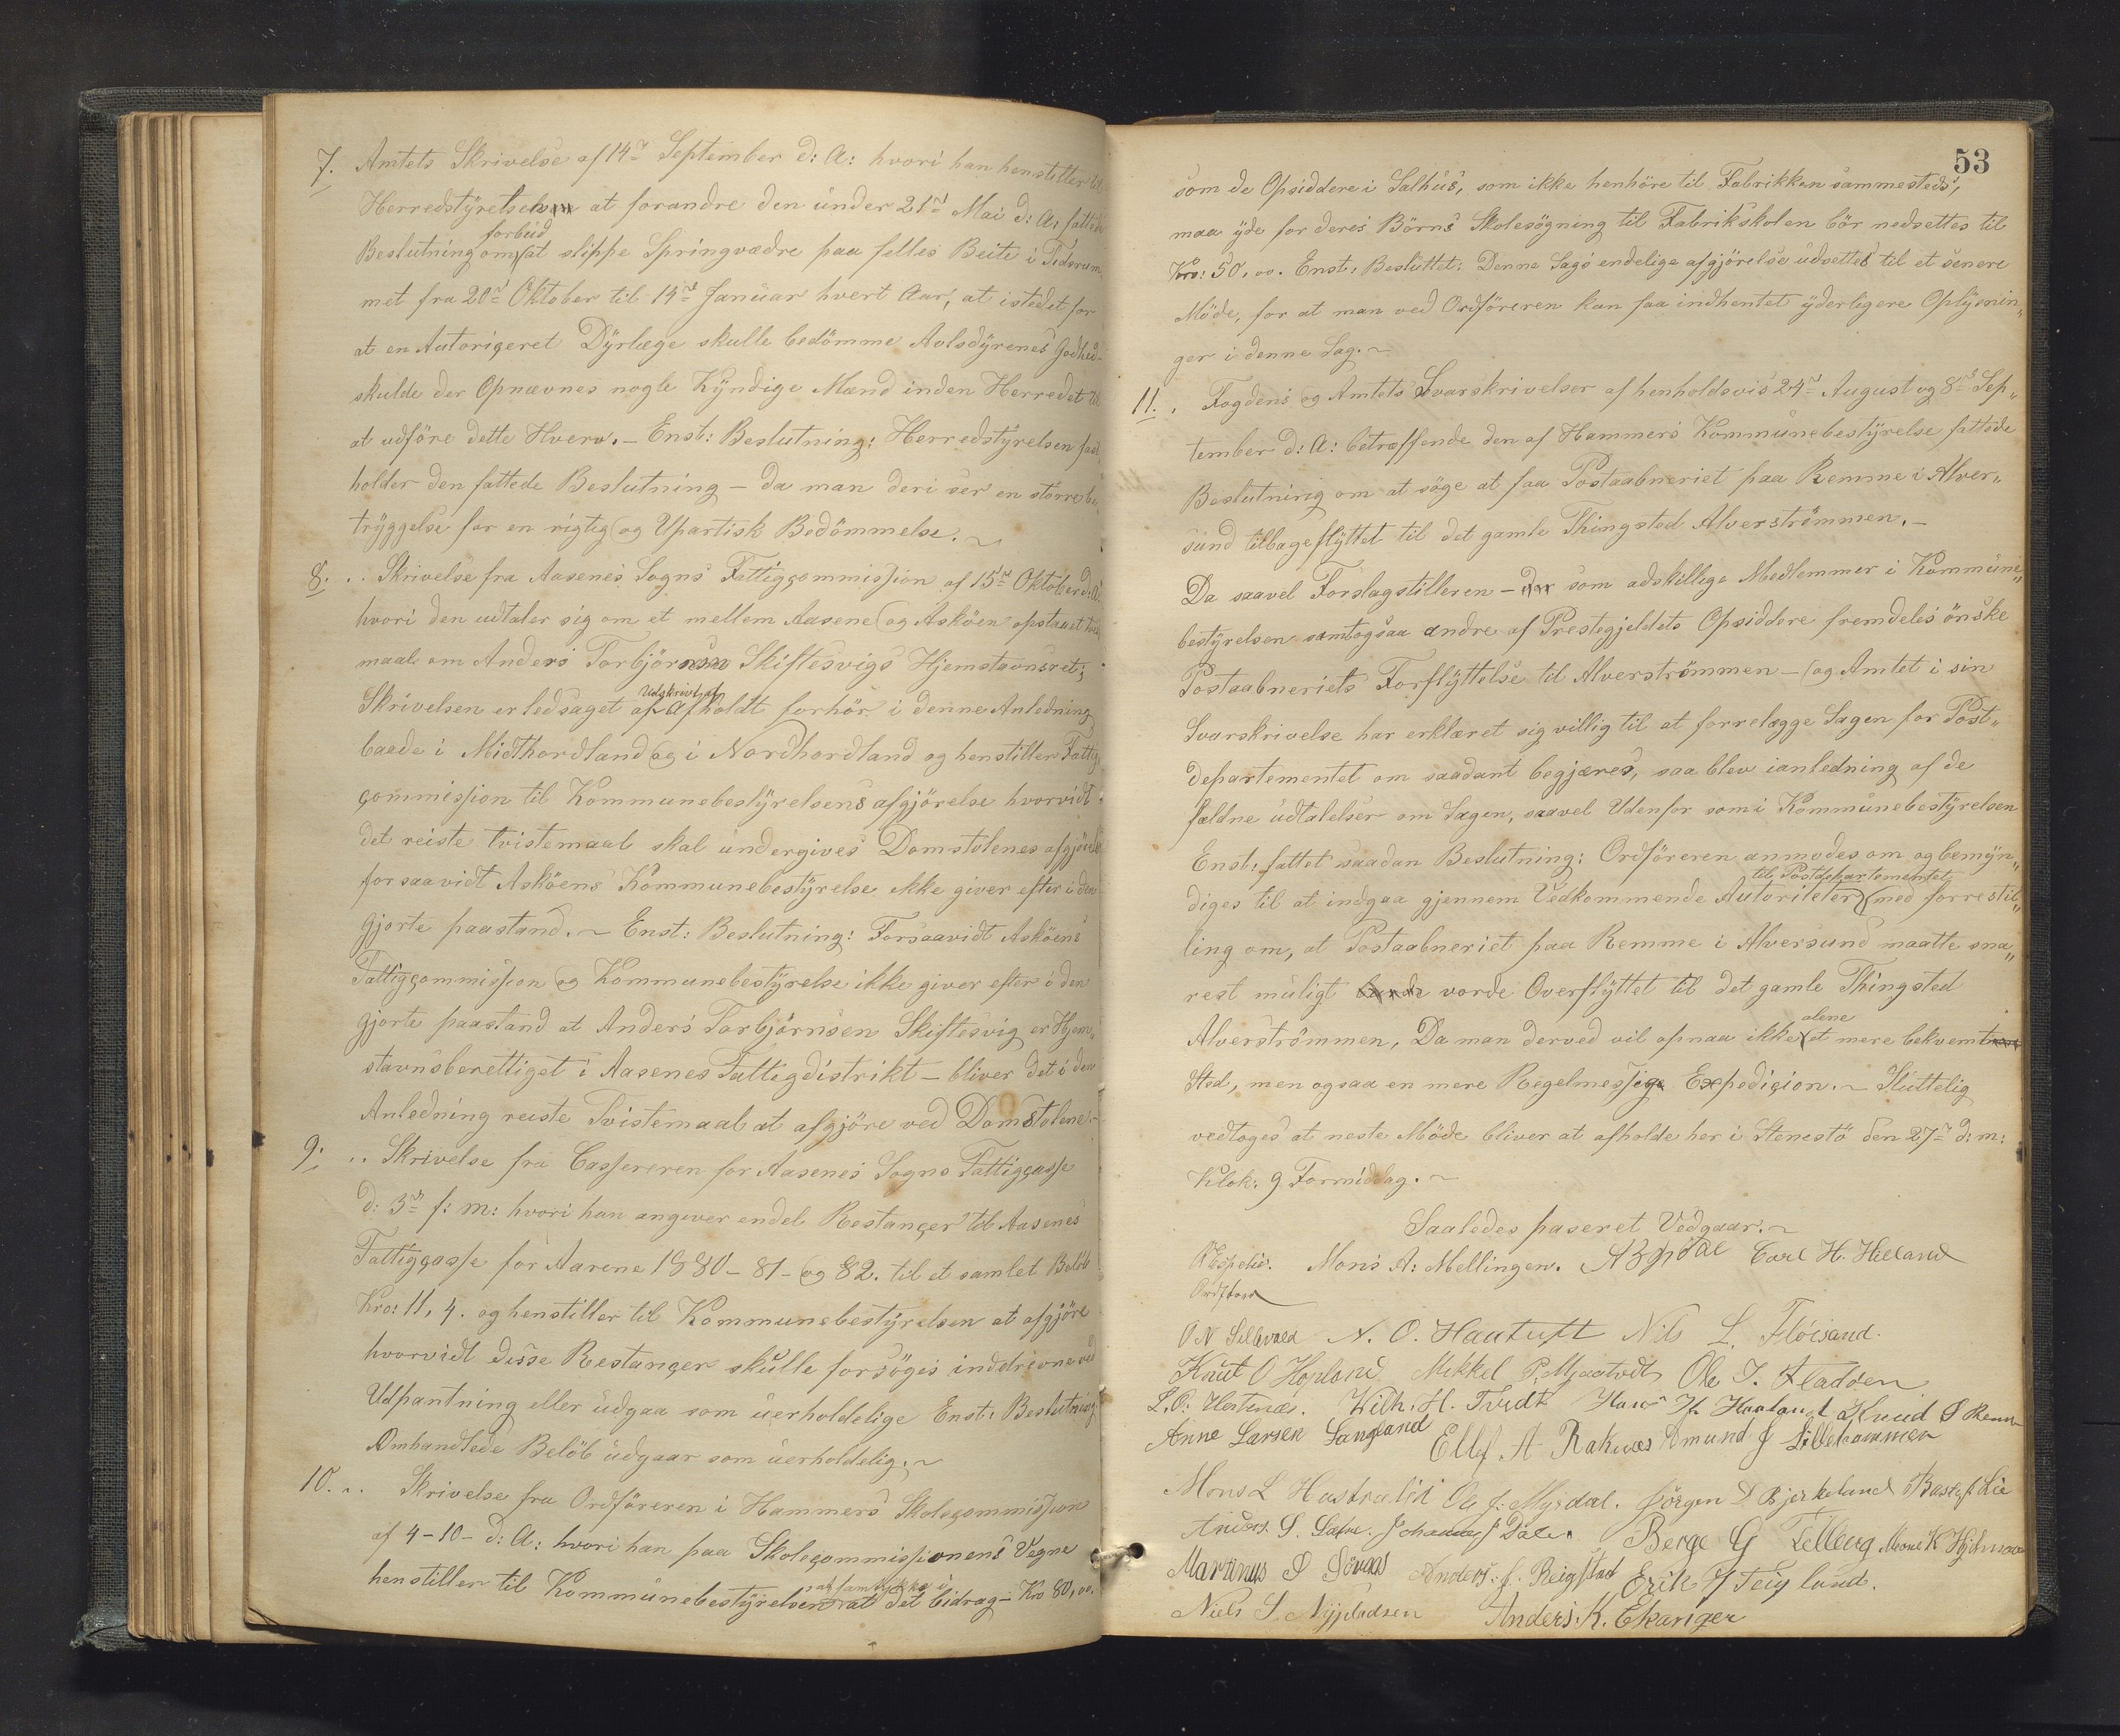 7. Amtets Skrivelse af 14de September d: A: hvori han henstiller til
Herredstyrelsen at forandre den under 21de Mai d: A: fattede
forbud
Beslutning om at slippe Springvædre paa felles Beite i Tidsrum
met fra 20de Oktober til 14de Januar hvert Aar, at istedet for
at en Autoriseret Dyrlæge skulle bedömme Avlsdyrenes Godhed
skulde der Opnævnes nogle Kyndige Mænd inden Herredet til
at udföre dette Hverv. – Enst: Beslutning: Herredstyrelsen fast
holder den fattede Beslutning – da man deri ser en större be
tryggelse for en rigtig og Upartisk Bedömmelse. ~
8. .. Skrivelse fra Aasenes Sogns Fattigcommission af 15de Oktober d: A:
hvori den udtaler sig om et mellem Aasene og Asköen opstaaet tviste
maal om Anders Torbjörnsen Skiftesvigs Hjemstavnsret;
Udskrivt af
Skrivelsen er ledsaget af Afholdt forhör i denne Anledning
baade i Midthordland og i Nordhordland og henstiller Fattig
commission til Kommunebestyrelsens afgjörelse hvorvidt
det reiste tvistemaal skal undergives Domstolenes afgjörelse
for saavidt Asköens Kommunebestyrelse ikke giver efter i den
gjorte paastand. ~ Enst: Beslutning: Forsaavidt Asköens
Fattigcommission og Kommunebestyrelse ikke giver efter i den
gjorte paastand at Anders Torbjörnsen Skiftesvig er Hjem„
stavnsberettiget i Aasenes Fattigdistrikt – bliver det i den
Anledning reiste Tvistemaal at afgjöre ved Domstolene. –
9. .. Skrivelse fra Cassereren for Aasenes Sogns Fattigcasse
d: 3de f: m: hvori han angiver endel Restancer til Aasenes
Fattigcasse for Aarene 1880 – 81 – og 82. til et samlet Belöb
Kro: 11, 4. og henstiller til Kommunebestyrelsen at afgjöre
hvorvidt disse Restancer skulle forsöges inddrevne ved
Udpantning eller udgaa som uerholdelige Enst: Beslutning
Omhandlede Belöb udgaar som uerholdelig. ~
10. .. Skrivelse fra Ordföreren i Hammers Skolecommission
af 4 – 10 – d: A: hvori han paa Skolecommissionens Vegne
at samtykke i
henstiller til Kommunebestyrelsen at det bidrag – Kro 80,00.
53
som de Opsiddere i Salhus, som ikke henhöre til Fabrikken sammesteds,
maa yde for deres Börns Skolesögning til Fabrikskolen bör nedsettes til
Kro: 50,00. Enst: Besluttet: Denne Sags endelige afgjörelse udsettes til et senere
Möde, for at man ved Ordföreren kan faa indhentet yderligere Oplysnin„
ger i denne Sag. ~
11. . Fogdens og Amtets Svarskrivelser af henholdsvis 24de August og 8de Sep„
tember d: A: betræffende den af Hammers Kommunebestyrelse fattede
Beslutning om at söge at faa Postaabneriet paa Remme i Alver„
sund tilbageflyttet til det gamle Thingsted Alverströmmen. –
Da saavel Forslagstilleren – som adskillige Medlemmer i Kommune„
bestyrelsen samtogsaa andre af Prestegjeldets Opsiddere fremdeles önske
Postaabneriets Forflyttelse til Alverströmmen – og Amtet i sin
Svarskrivelse har erklæret sig villig til at forrelægge Sagen for Post„
departementet om saadant begjæres, saa blev ianledning af de
faldne udtalelser om Sagen, saavel Udenfor som i Kommunebestyrelsen
Enst: fattet saadan Beslutning: Ordföreren anmodes om og bemyn„
til Postdepartementet
diges til at indgaa gjennem Vedkommende Autoriteter med forrestil„
ling om, at Postaabneriet paa Remme i Alversund maatte sna„
rest muligt vorde Overflyttet til det gamle Thingsted
alene
Alverströmmen, Da man derved vil opnaa ikke et mere bekvemt
Sted, men ogsaa en mere Regelmessige Expedicion. ~ Sluttelig
vedtoges at neste Möde bliver at afholde her i Stenestö den 27de d: m:
Klok: 9 Formiddag. ~
Saaledes paseret Vedgaar. ~
Mons A: Mellingen. Carl H. Helland
Ordförer
N. O. Hautuft Nils L. Flöisand.
Knut O Hopland Mikkel P. Mjaatvedt Ole I. Fladöen
L. O: Hertnæs. Wilh: H. Tvedt Hans H. Haaland Knud S Remme
Anne Larsen Langeland Ellef A Raknæs Amund J Lillehammer
Mons L Hustrulid Ole J: Myrdal. Jörgen D. Bjerkeland
Anders. S. Johannes J Dale. Berge G Felleug
Martinus S Anders. J. Reigstad Erik J Teigland.
Niels S. Anders. K. Ekanger